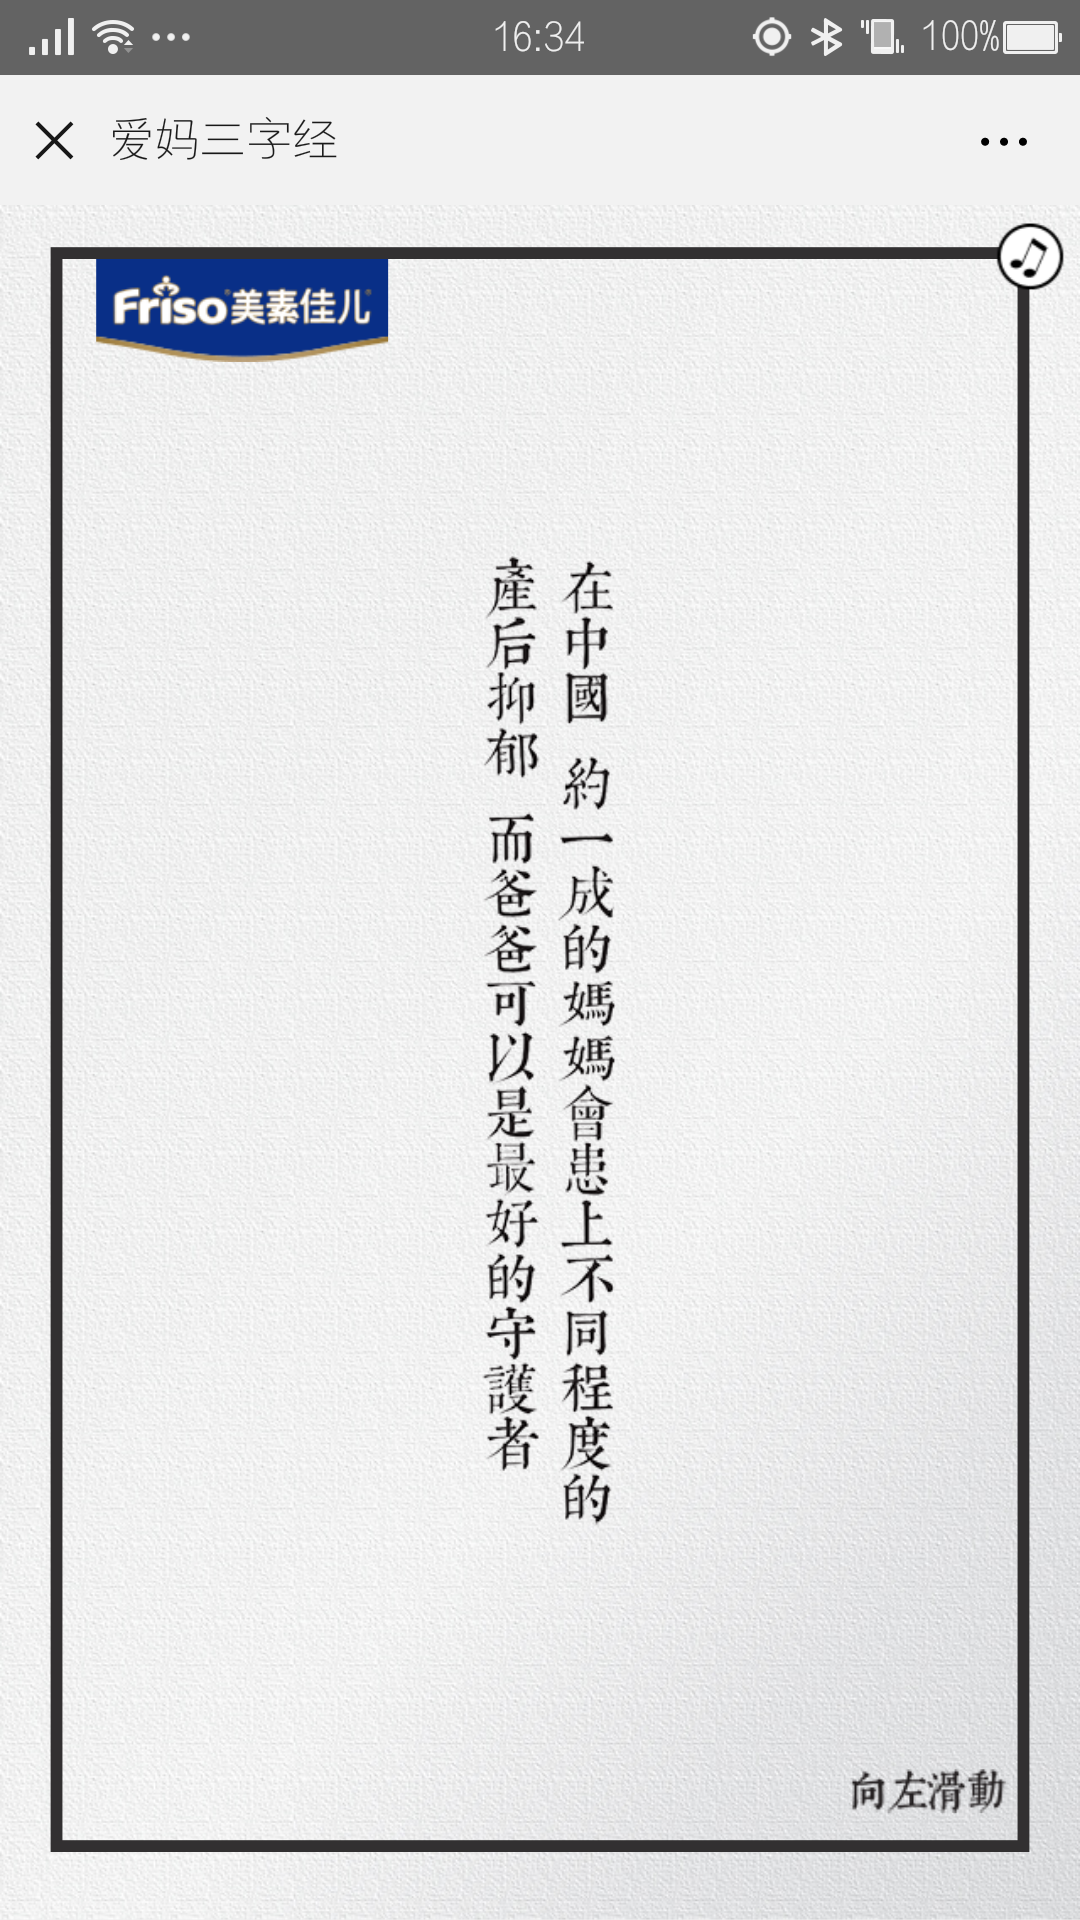 16:34
100%
爱妈三字经
Friso美素佳儿
在中國 約一成的媽媽會患上不同程度的
產后抑郁 而爸爸可以是最好的守護者
向左滑動